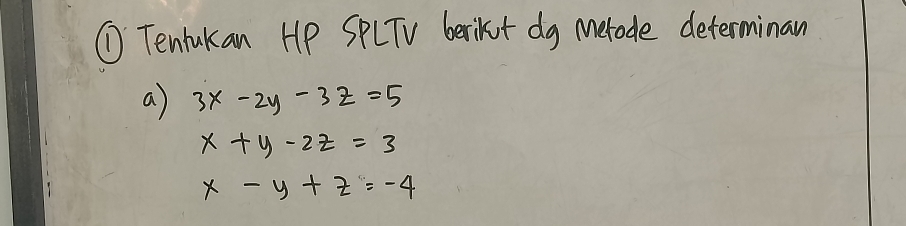 ① Tentukan HP SPLTV berikut dg metode determinan
a) 3x - 2y - 3z = 5
x + y - 2z = 3
x - y + z = -4